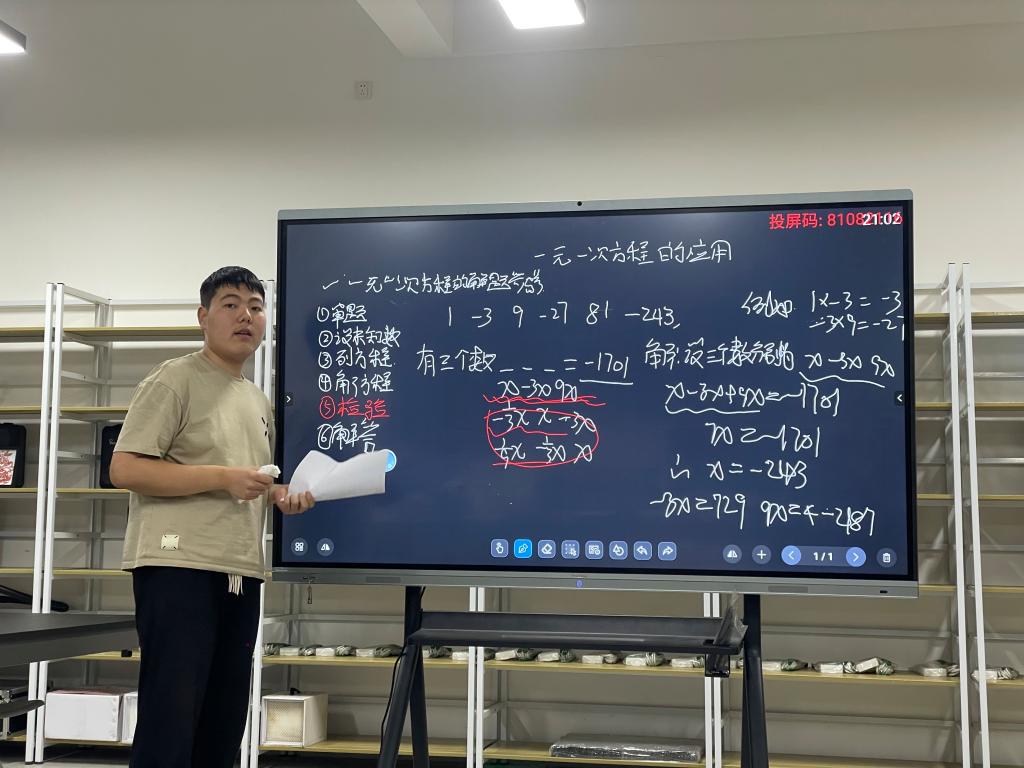 投屏码: 81082106
21:02
一元一次方程的应用
一元一次方程的解题步骤
①审题
②设未知数
③列方程
④解方程
⑤检验
⑥解答
1 -3 9 -27 81 -243,
有三个数 _ _ _ = -1701
x -3x 9x
-3x x -3x
x
例如: 1x-3=-3
-3x9=-27
解:设三个数分别为 x -3x 9x
x-3x+9x=-1701
7x=-1701
∴ x=-243
-3x=729 9x= -2187
1/1